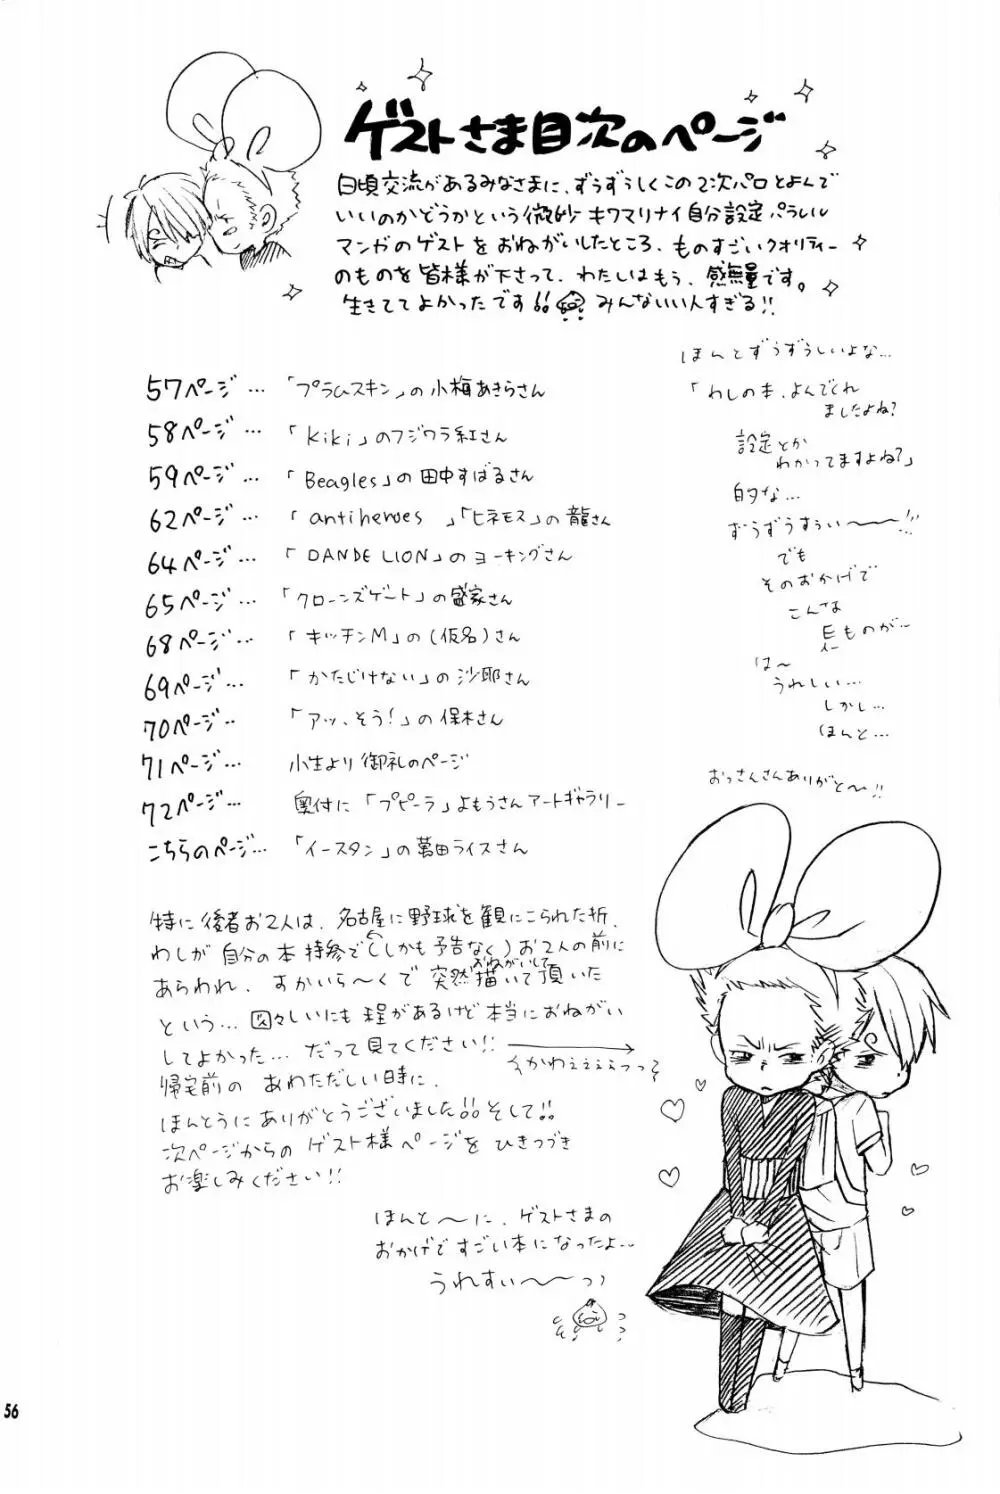 ゲストさま目次のページ
日頃交流があるみなさまに、ずうずうしくこの2次パロとよんで
いいのかどうかという微妙キワマリナイ自分設定パラレル
マンガのゲストをおねがいしたところ、ものすごいクオリティーの
ものを皆様が下さって、わたしはもう、感無量です。
生きててよかったです!! みんないい人すぎる!!
ほんとずうずうしいよな…
「わしの本、よんでくれ
ましたよね?
設定とか
わかってますよね?」
的な…
ずうずうすぅい〜〜!!!
でも
そのおかげで
こんなな
巨ものが…
は〜
うれしい…
しかし…
ほんと…
おっさんさんありがと〜!!
57ページ… 「プラムスキン」の小梅あきらさん
58ページ… 「kiki」のフジワラ紅さん
59ページ… 「Beagles」の田中すばるさん
62ページ… 「antiheroes」「ヒネモス」の龍さん
64ページ… 「DANDELION」のヨーキングさん
65ページ… 「クローンズゲート」の盛家さん
68ページ… 「キッチンM」の(仮名)さん
69ページ… 「かたじけない」の沙耶さん
70ページ… 「アッ、そう!」の保木さん
71ページ… 小生より御礼のページ
72ページ… 奥付に「プピーラ」よもうさんアートギャラリー
こちらのページ… 「イースタン」の萬田ライスさん
特に後者お2人は、名古屋に野球を観にこられた折、
わしが自分の本持参で(しかも予告なく)お2人の前に
あらわれ、すかいら〜くで突然おねがいして描いて頂いた
という… 図々しいにも程があるけど本当におねがい
してよかった… だって見てください!!
かわぇぇぇぇっっ
帰宅前のあわただしい時に、
ほんとうにありがとうございました!! そして!!
次ページからのゲスト様ページをひきつづき
お楽しみください!!
ほんと〜に、ゲストさまの
おかげですごい本になったよ…
うれすぃ〜〜っ
56